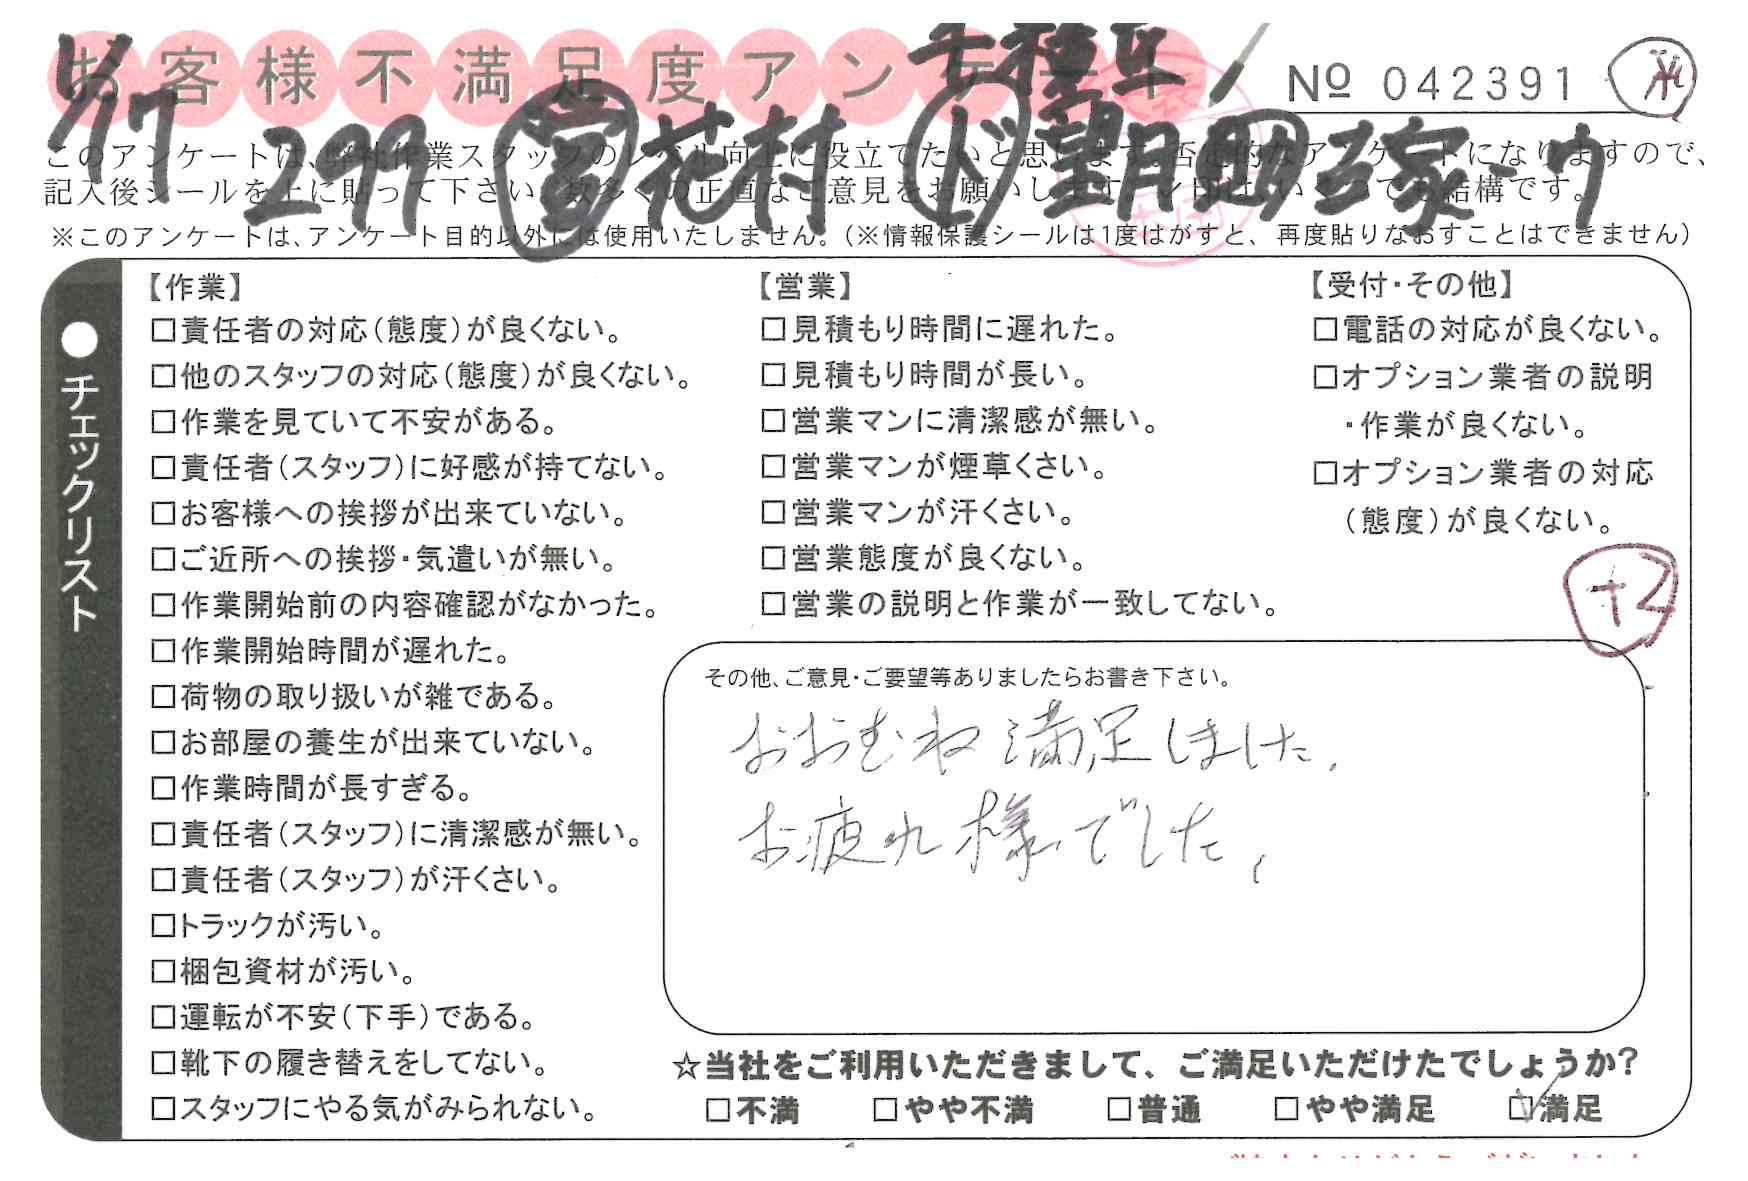 お客様不満足度アンケート
No 042391
4/17 299 営 花村 ド 望月
このアンケートは、弊社作業スタッフのレベル向上に役立てたいと思います。否定的なアンケートになりますので、
記入後シールを上に貼って下さい。数多くの正直なご意見をお願いします。
※このアンケートは、アンケート目的以外には使用いたしません。（※情報保護シールは1度はがすと、再度貼りなおすことはできません）
●チェックリスト
【作業】
□責任者の対応（態度）が良くない。
□他のスタッフの対応（態度）が良くない。
□作業を見ていて不安がある。
□責任者（スタッフ）に好感が持てない。
□お客様への挨拶が出来ていない。
□ご近所への挨拶・気遣いが無い。
□作業開始前の内容確認がなかった。
□作業開始時間が遅れた。
□荷物の取り扱いが雑である。
□お部屋の養生が出来ていない。
□作業時間が長すぎる。
□責任者（スタッフ）に清潔感が無い。
□責任者（スタッフ）が汗くさい。
□トラックが汚い。
□梱包資材が汚い。
□運転が不安（下手）である。
□靴下の履き替えをしてない。
□スタッフにやる気がみられない。
【営業】
□見積もり時間に遅れた。
□見積もり時間が長い。
□営業マンに清潔感が無い。
□営業マンが煙草くさい。
□営業マンが汗くさい。
□営業態度が良くない。
□営業の説明と作業が一致してない。
【受付・その他】
□電話の対応が良くない。
□オプション業者の説明
・作業が良くない。
□オプション業者の対応
（態度）が良くない。
+2
その他、ご意見・ご要望等ありましたらお書き下さい。
おおむね満足しました。
お疲れ様でした。
☆当社をご利用いただきまして、ご満足いただけたでしょうか？
□不満 □やや不満 □普通 □やや満足 ☑満足